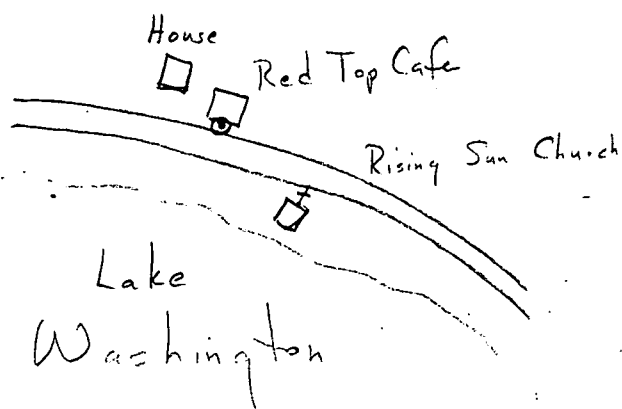 House
Red Top Cafe
Rising Sun Church
Lake
Washington